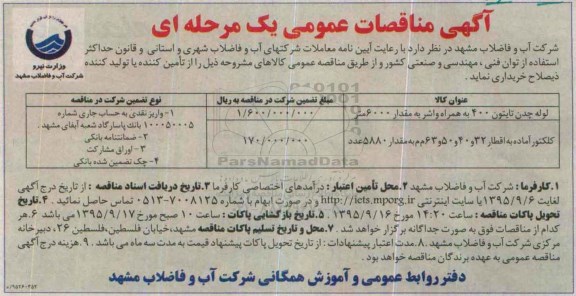 آگهی مناقصات عمومی یک مرحله ای
وزارت نیرو
شرکت آب و فاضلاب مشهد
شرکت آب و فاضلاب مشهد در نظر دارد با رعایت آیین نامه معاملات شرکتهای آب و فاضلاب شهری و استانی و قانون حداکثر
استفاده از توان فنی ، مهندسی و صنعتی کشور و از طریق مناقصه عمومی کالاهای مشروحه ذیل را از تأمین کننده یا تولید کننده
ذیصلاح خریداری نماید .
عنوان کالا
مبلغ تضمین شرکت در مناقصه به ریال
نوع تضمین شرکت در مناقصه
لوله چدن تایتون ۴۰۰ به همراه واشر به مقدار ۶۰۰۰ متر
۱/۶۰۰/۰۰۰/۰۰۰
کلکتور آماده به اقطار ۳۲و۴۰و۵۰و۶۳م م به مقدار ۵۸۸۰عدد
۱۷۰/۰۰۰/۰۰۰
۱- واریز نقدی به حساب جاری شماره
۱۰۰۰۵۰۰۰۵ بانک پاسارگاد شعبه آبفای مشهد .
۲- ضمانتنامه بانکی
۳- اوراق مشارکت
۴- چک تضمین شده بانکی
۱.کارفرما : شرکت آب و فاضلاب مشهد ۲.محل تأمین اعتبار : درآمدهای اختصاصی کارفرما ۳.تاریخ دریافت اسناد مناقصه : از تاریخ درج آگهی
لغایت ۱۳۹۵/۹/۶ با سایت اینترنتی http://iets.mporg.ir و در صورت ابهام با شماره ۷۰۰۸۱۲۵-۰۵۱۳ تماس حاصل نمائید . ۴.تاریخ
تحویل پاکات مناقصه : ساعت ۱۴:۲۰ مورخ ۱۳۹۵/۹/۱۶ . ۵.تاریخ بازگشایی پاکات : ساعت ۱۰ صبح مورخ ۱۳۹۵/۹/۱۷ می باشد ۶.هر
کدام از مناقصات فوق به صورت جداگانه برگزار خواهد شد . ۷.محل و تاریخ تسلیم پاکات مناقصه : مشهد،خیابان فلسطین،فلسطین ۲۶، دبیرخانه
مرکزی شرکت آب و فاضلاب مشهد .۸.مدت اعتبار پیشنهادات : از تاریخ تحویل پاکات پیشنهاد قیمت به مدت سه ماه می باشد . ۹.هزینه درج آگهی
مناقصه عمومی به عهده برندگان مناقصه خواهد بود .
دفتر روابط عمومی و آموزش همگانی شرکت آب و فاضلاب مشهد
ParsNamadData